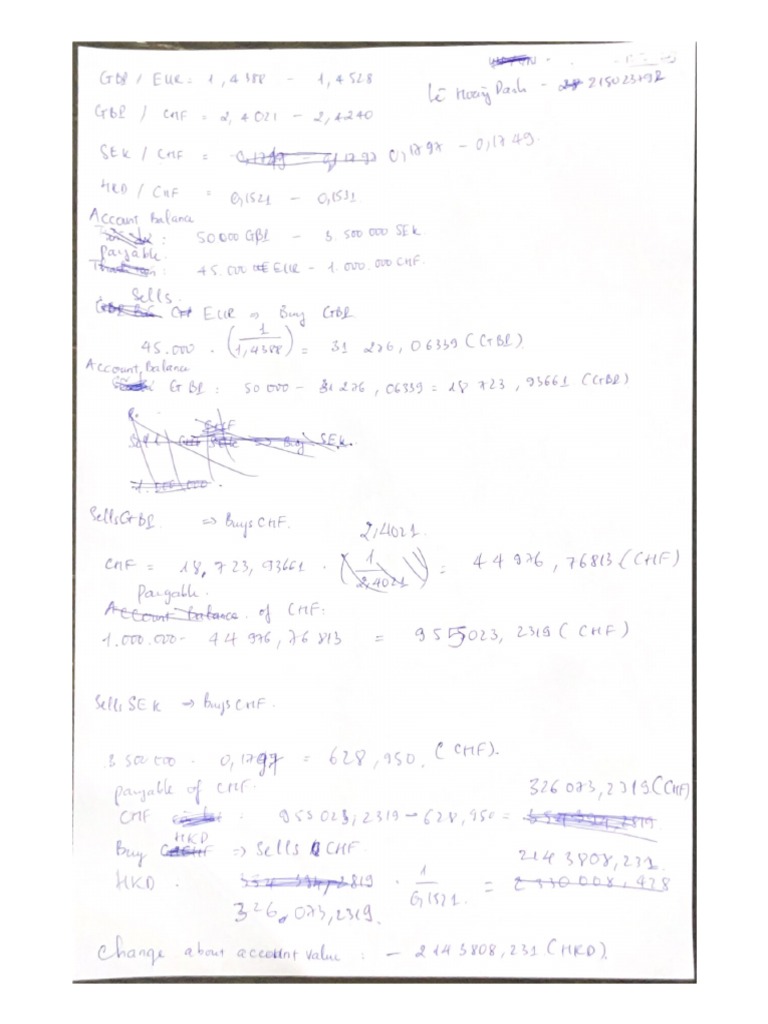 GBP / EUR: 1,4388 - 1,4528
Lê Hoàng Danh - 21502379R
GBP / CHF = 2,4021 - 2,4240
SEK / CHF = 0,1797 - 0,1749.
HKD / CHF = 0,1521 - 0,1531.
Account Balance
: 50 000 GBP - 3.500 000 SEK.
payable.
: 45.000 EUR - 1.000.000 CHF.
Sells.
EUR => Buy GBP
45.000 . (1/1,4388) = 31 276,06339 (GBP)
Account Balance
GBP: 50 000 - 31 276,06339 = 18 723,93661 (GBP)
SEK.
Sells GBP => Buys CHF.
2,4021.
CHF = 18,723,93661 . (1/2,4021) = 44 976,76813 (CHF)
Payable.
Account balance of CHF:
1.000.000 - 44 976,76 813 = 955023,2319 (CHF)
Sells SEK -> Buys CHF.
3 500 000 . 0,1797 = 628,950. (CHF).
payable of CHF.
326 073,2319 (CHF)
CHF : 955 023,2319 - 628,950 =
HKD
Buy => Sells CHF.
2143808,231.
HKD . . 1/0,1521. =
326.073,2319.
Change about account value : - 2143808,231 (HKD).